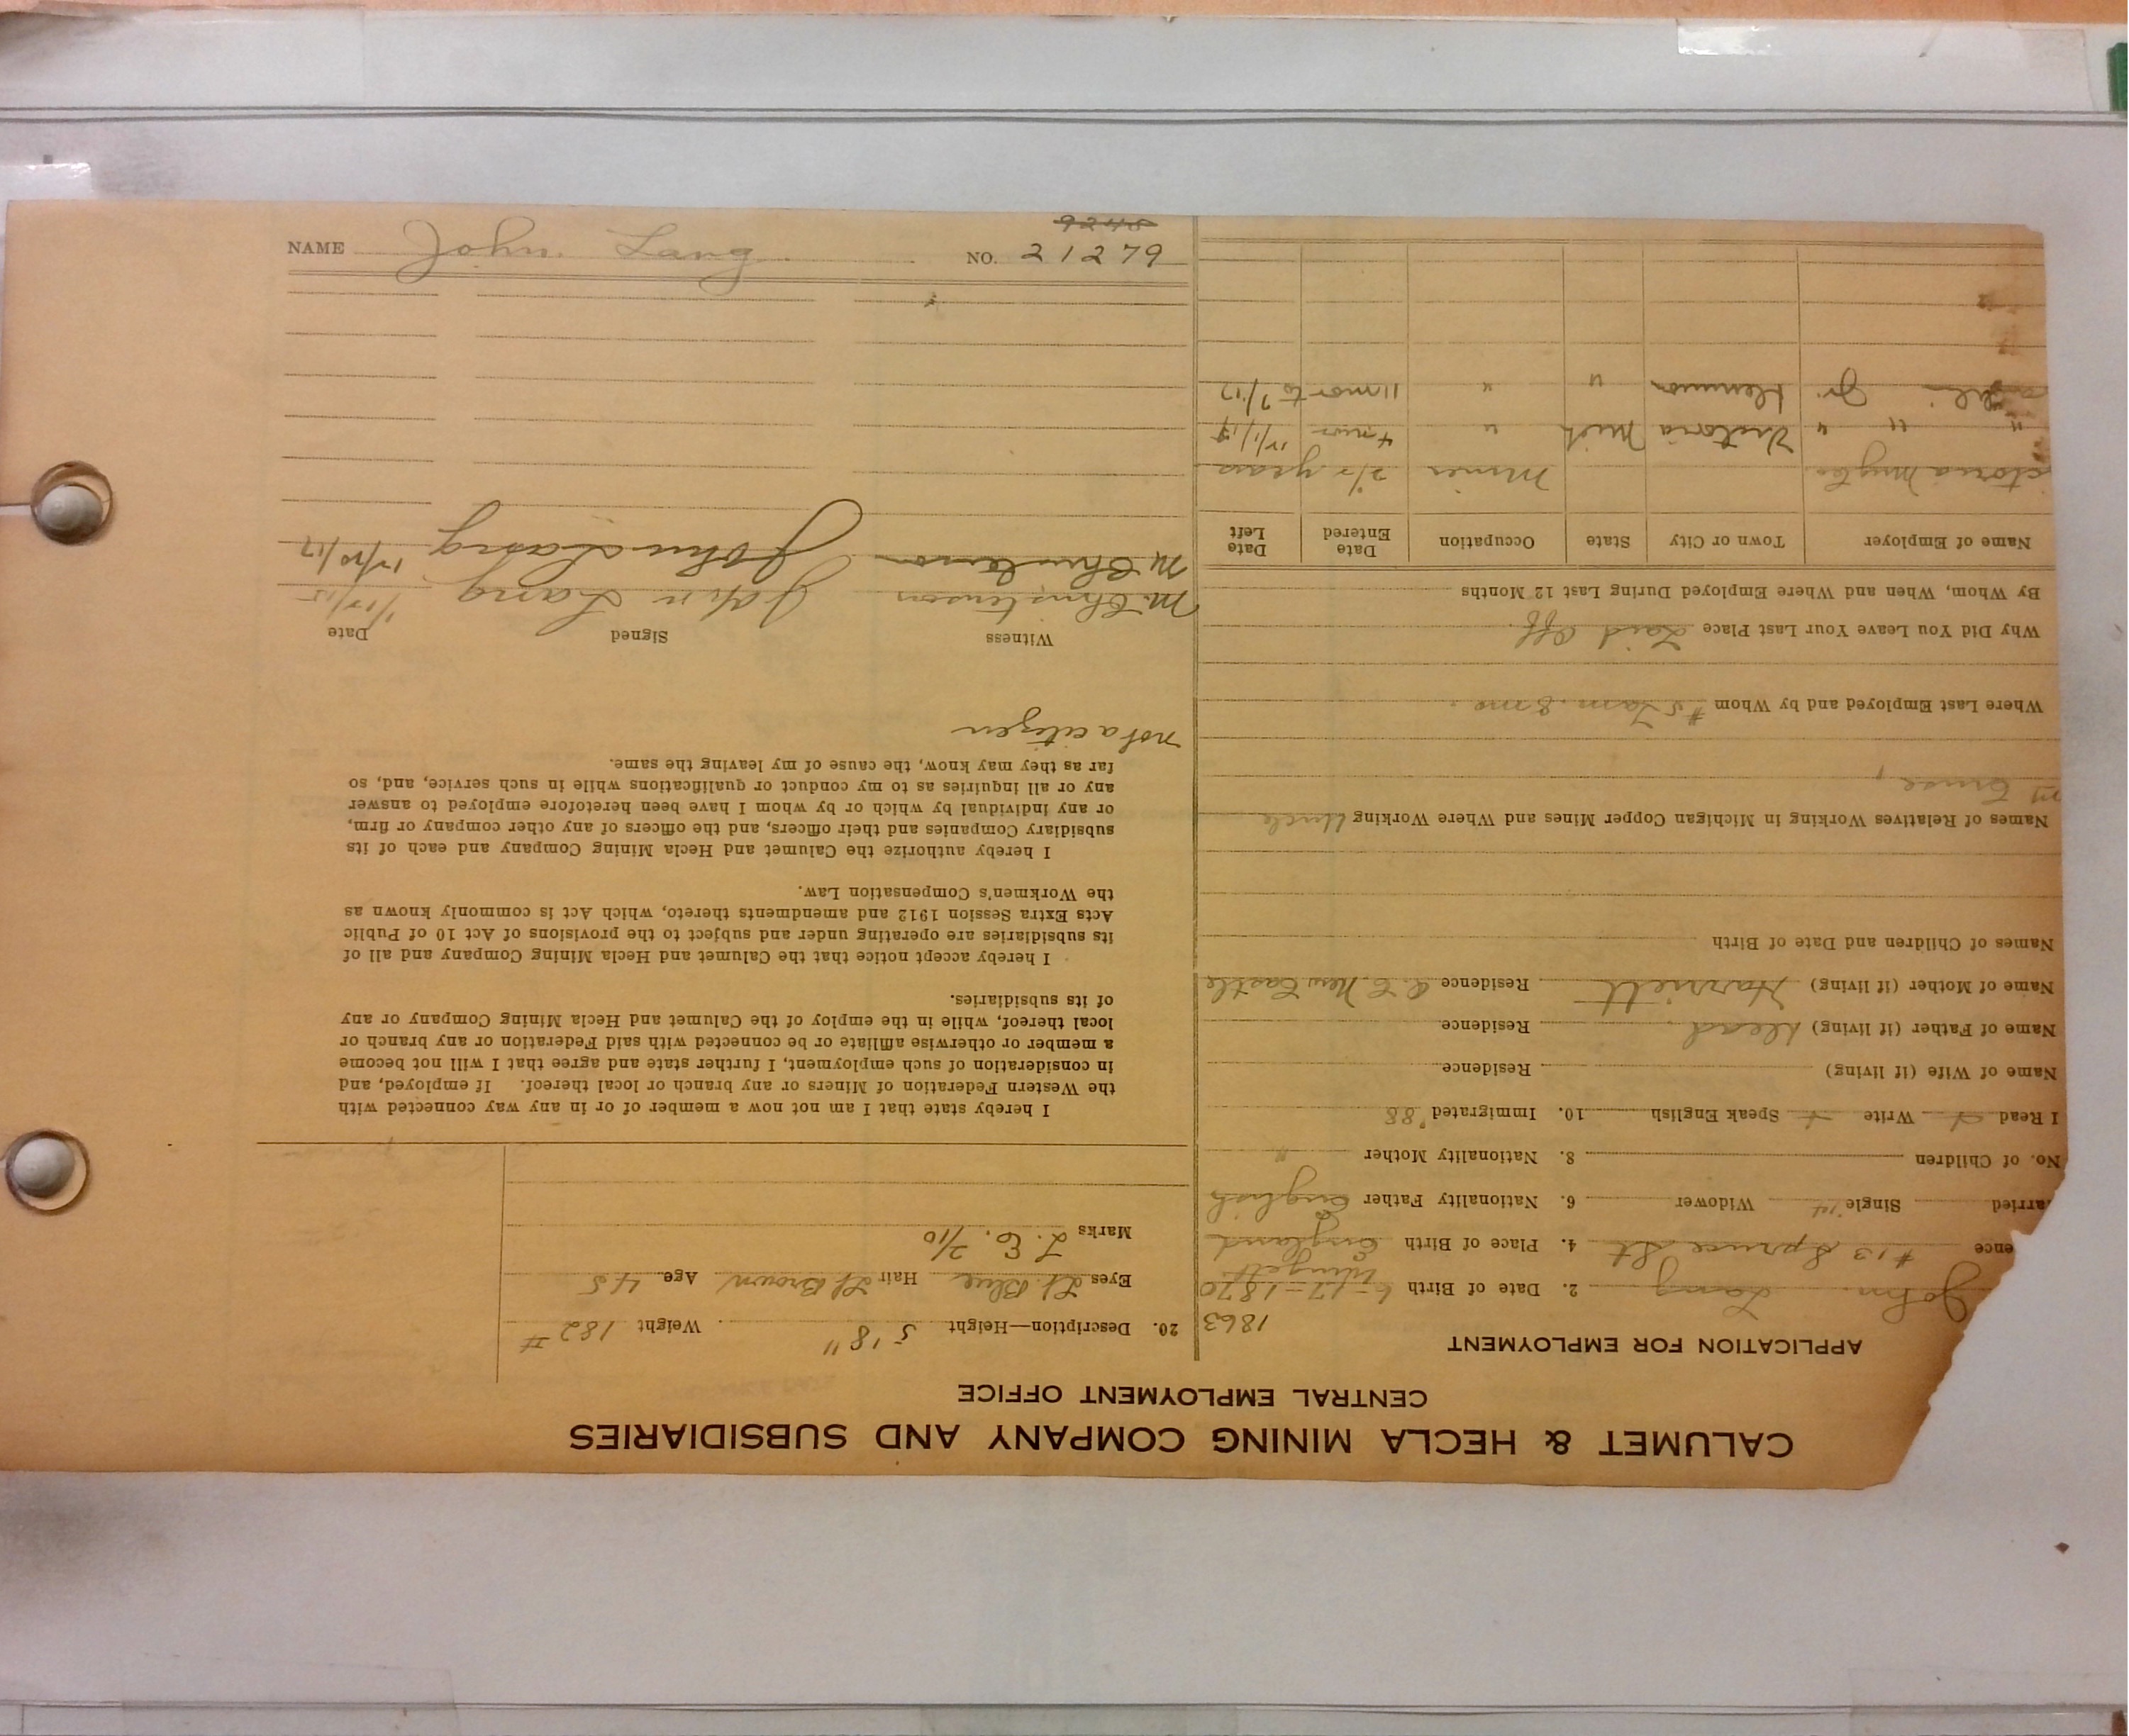 CALUMET & HECLA MINING COMPANY AND SUBSIDIARIES
CENTRAL EMPLOYMENT OFFICE
APPLICATION FOR EMPLOYMENT
1863
John Lang 2. Date of Birth 6-17-1870
ence #13 Spruce St 4. Place of Birth England
arried Single Widower 6. Nationality Father English
No. of Children 8. Nationality Mother "
I Read Write Speak English 10. Immigrated '88
Name of Wife (if living) Residence
Name of Father (if living) Dead Residence
Name of Mother (if living) Harriett Residence New Castle
Names of Children and Date of Birth
Names of Relatives Working in Michigan Copper Mines and Where Working Uncle
Where Last Employed and by Whom #5 Tam. 8 mo.
Why Did You Leave Your Last Place Laid off
By Whom, When and Where Employed During Last 12 Months
Name of Employer Town or City State Occupation Date Entered Date Left
ctoria Mng Co. Miner years
" " " Victoria Mich " 4 mos
" " 11 mos to 9/17
20. Description—Height 5'8" Weight 182#
Eyes Lt Blue Hair Lt Brown Age 45
Marks L. E. 2/10
I hereby state that I am not now a member of or in any way connected with
the Western Federation of Miners or any branch or local thereof. If employed, and
in consideration of such employment, I further state and agree that I will not become
a member or otherwise affiliate or be connected with said Federation or any branch or
local thereof, while in the employ of the Calumet and Hecla Mining Company or any
of its subsidiaries.
I hereby accept notice that the Calumet and Hecla Mining Company and all of
its subsidiaries are operating under and subject to the provisions of Act 10 of Public
Acts Extra Session 1912 and amendments thereto, which Act is commonly known as
the Workmen's Compensation Law.
I hereby authorize the Calumet and Hecla Mining Company and each of its
subsidiary Companies and their officers, and the officers of any other company or firm,
or any individual by which or by whom I have been heretofore employed to answer
any or all inquiries as to my conduct or qualifications while in such service, and, so
far as they may know, the cause of my leaving the same.
not a citizen
Witness Signed Date
M. Christenson John Lang
M Christenson John Lang 12/20/17
9248
NAME John Lang NO. 21279